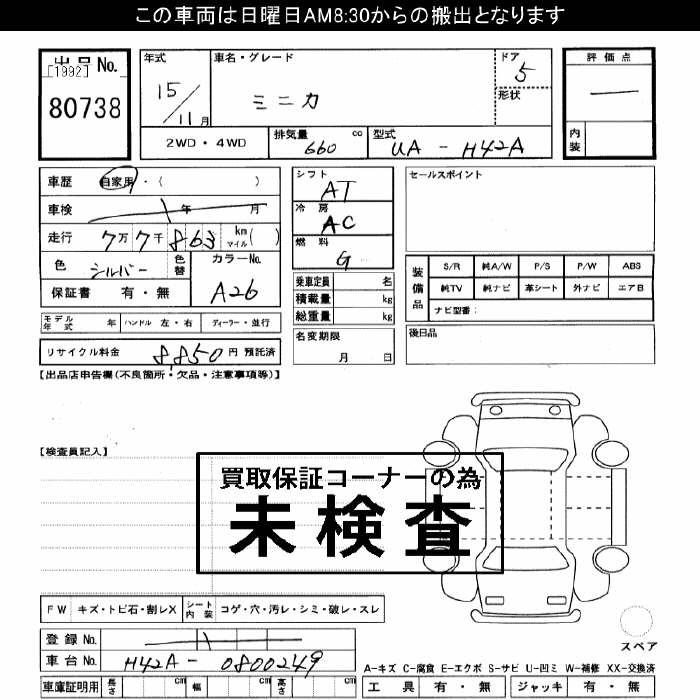 この車両は日曜日AM8:30からの搬出となります
出品No.
[1992]
80738
年式
15/11月
車名・グレード
ミニカ
ドア
5
形状
評価点
内装
2WD・4WD
排気量 cc
660
型式
UA - H42A
車歴 自家用・( )
車検 年 月
走行 7万7千863 km マイル( )
色 シルバー
色替
カラーNo.
A26
保証書 有・無
モデル年式 年 ハンドル 左・右 ディーラー・並行
リサイクル料金 8,850円 預託済
シフト
AT
冷房
AC
燃料
G
乗車定員 名
積載量 kg
総重量 kg
名変期限
月 日
セールスポイント
装備品
S/R 純A/W P/S P/W ABS
純TV 純ナビ 革シート 外ナビ エアB
ナビ型番:
後日品
【出品店申告欄(不良箇所・欠品・注意事項等)】
【検査員記入】
買取保証コーナーの為
未検査
FW キズ・トビ石・割レX シート内装 コゲ・穴・汚レ・シミ・破レ・スレ
登録No.
車台No. H42A- 0800249
車庫証明用 長さ cm 幅 cm 高さ cm
スペア
A-キズ C-腐食 E-エクボ S-サビ U-凹ミ W-補修 XX-交換済
工具 有・無 ジャッキ 有・無